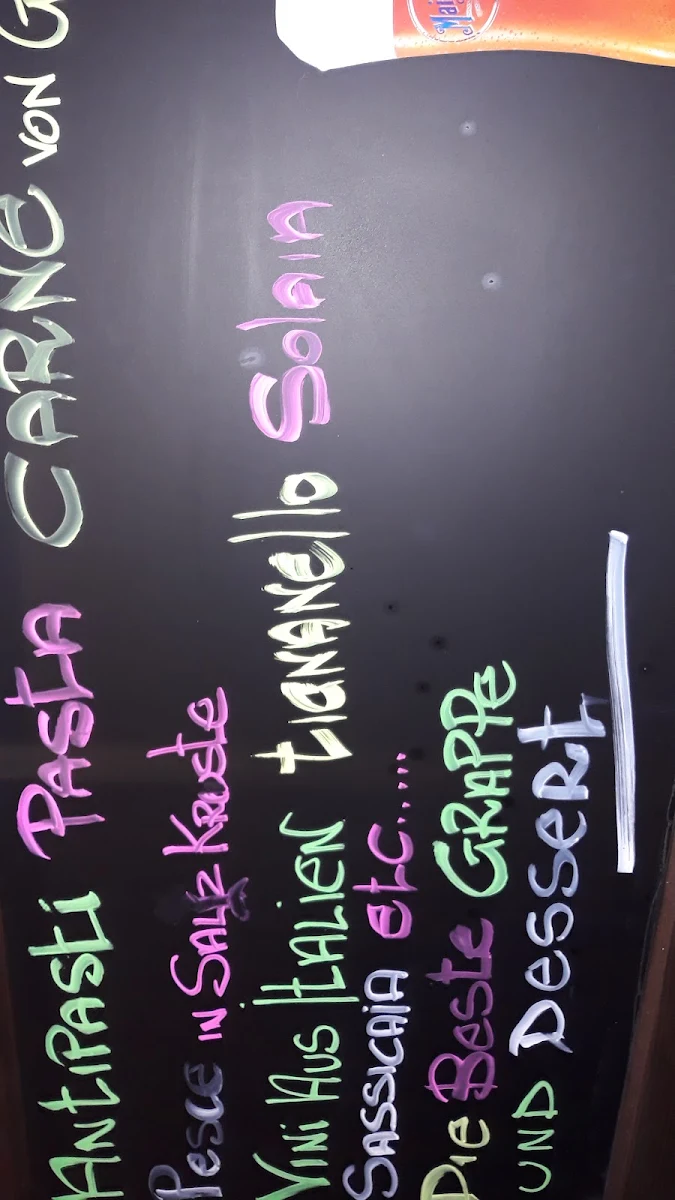 ANTIPASTI PASTA CARNE VON G
PESCE IN SALZ KRUSTE
VINI AUS ITALIEN tIGNANEllO SOlAIA
SASSICAIA etc.....
DIE BESTE GRAPPE
UND DESSERt
Mai